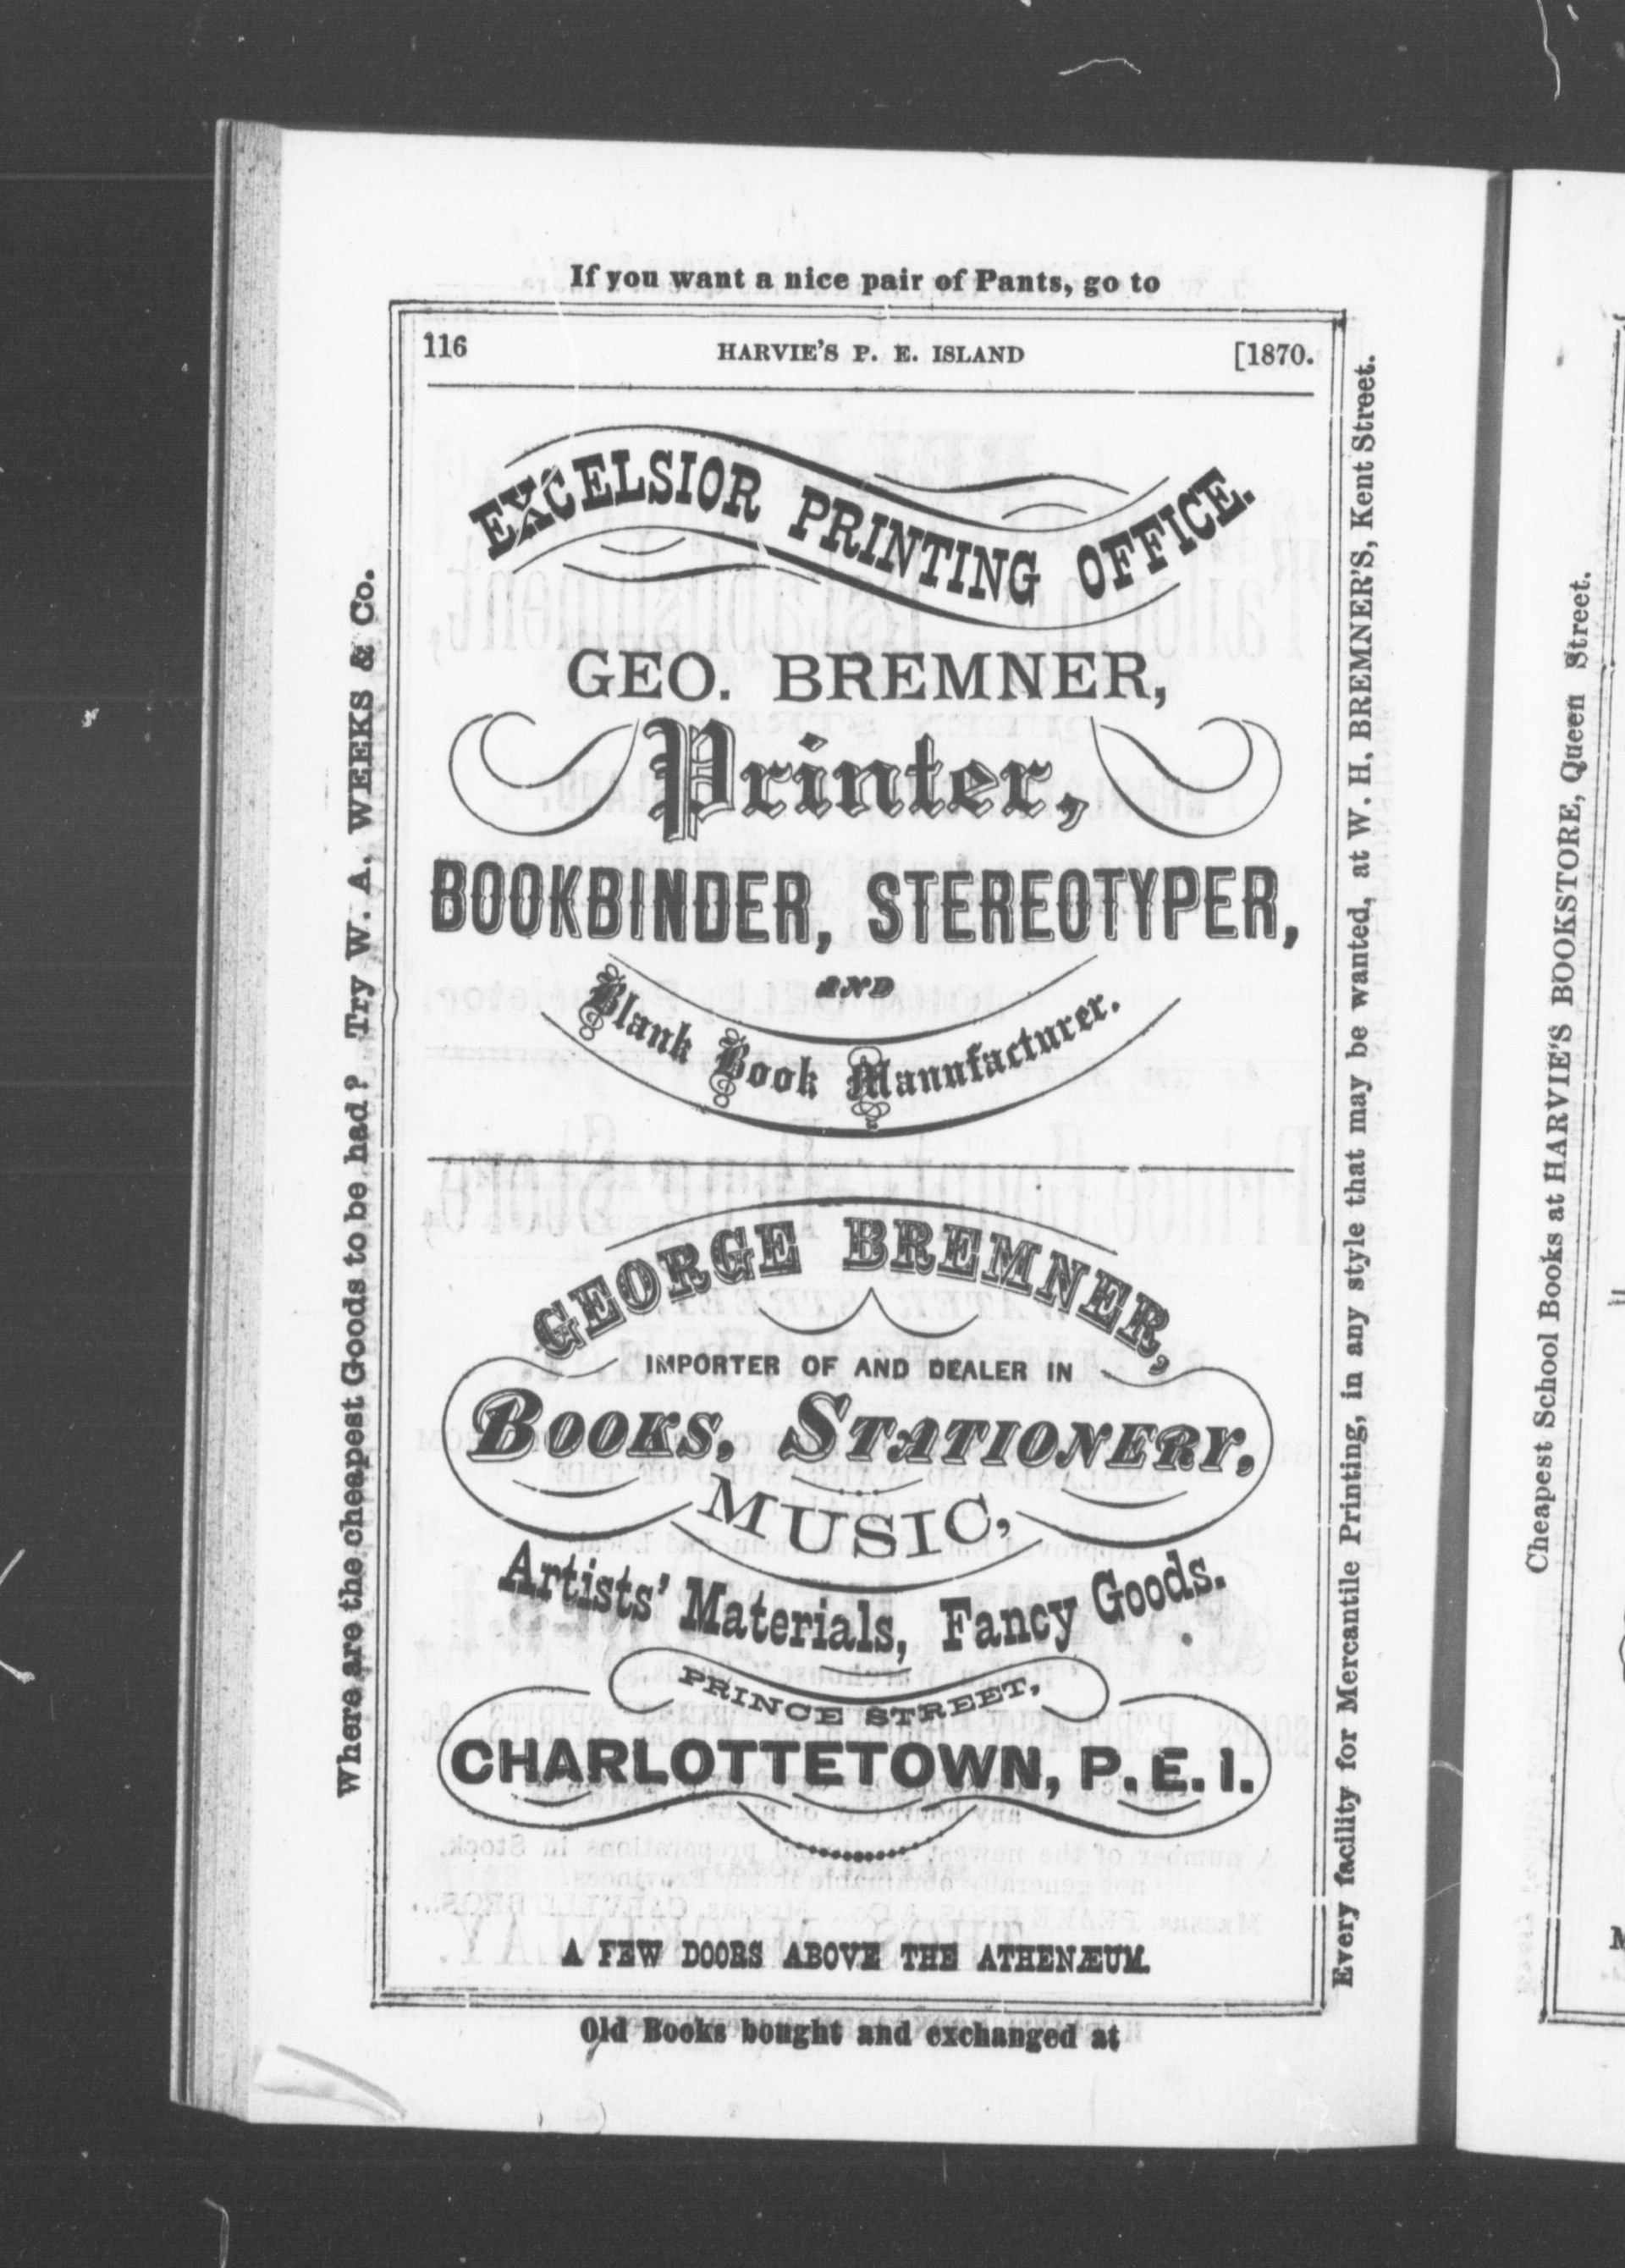 If you want a nice pair of Pants, go to
116 HARVIE'S P. E. ISLAND [1870.
EXCELSIOR PRINTING OFFICE.
GEO. BREMNER,
Printer,
BOOKBINDER, STEREOTYPER,
AND
Blank Book Manufacturer.
GEORGE BREMNER,
IMPORTER OF AND DEALER IN
BOOKS, STATIONERY,
MUSIC,
Artists' Materials, Fancy Goods.
PRINCE STREET,
CHARLOTTETOWN, P. E. I.
A FEW DOORS ABOVE THE ATHENÆUM.
Old Books bought and exchanged at
Where are the cheapest Goods to be had? Try W. A. WEEKS & Co.
Every facility for Mercantile Printing, in any style that may be wanted, at W. H. BREMNER'S, Kent Street.
Cheapest School Books at HARVIE'S BOOKSTORE, Queen Street.